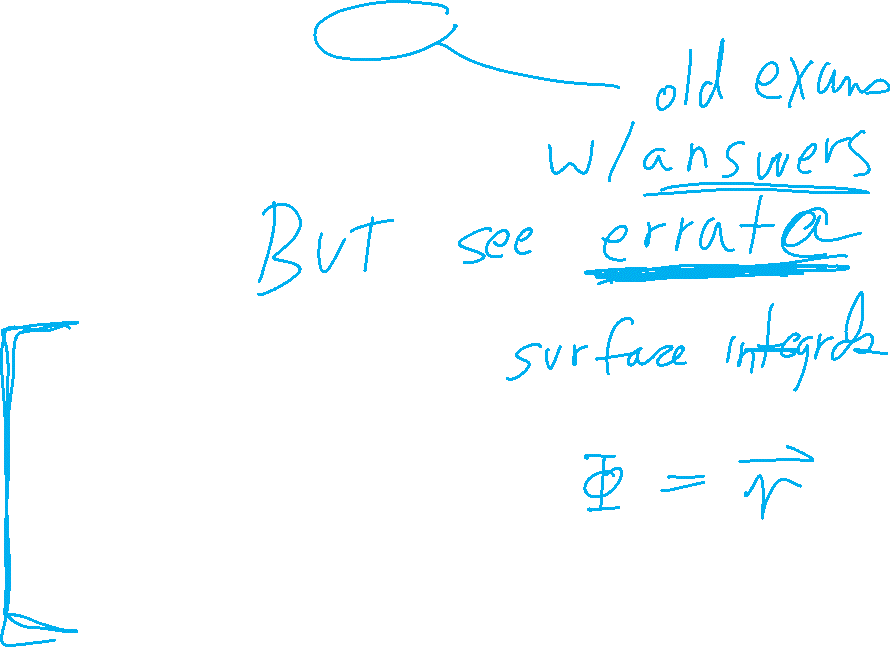 old exams
w/answers
BUT see errata
surface integrals
Φ = \vec{r}